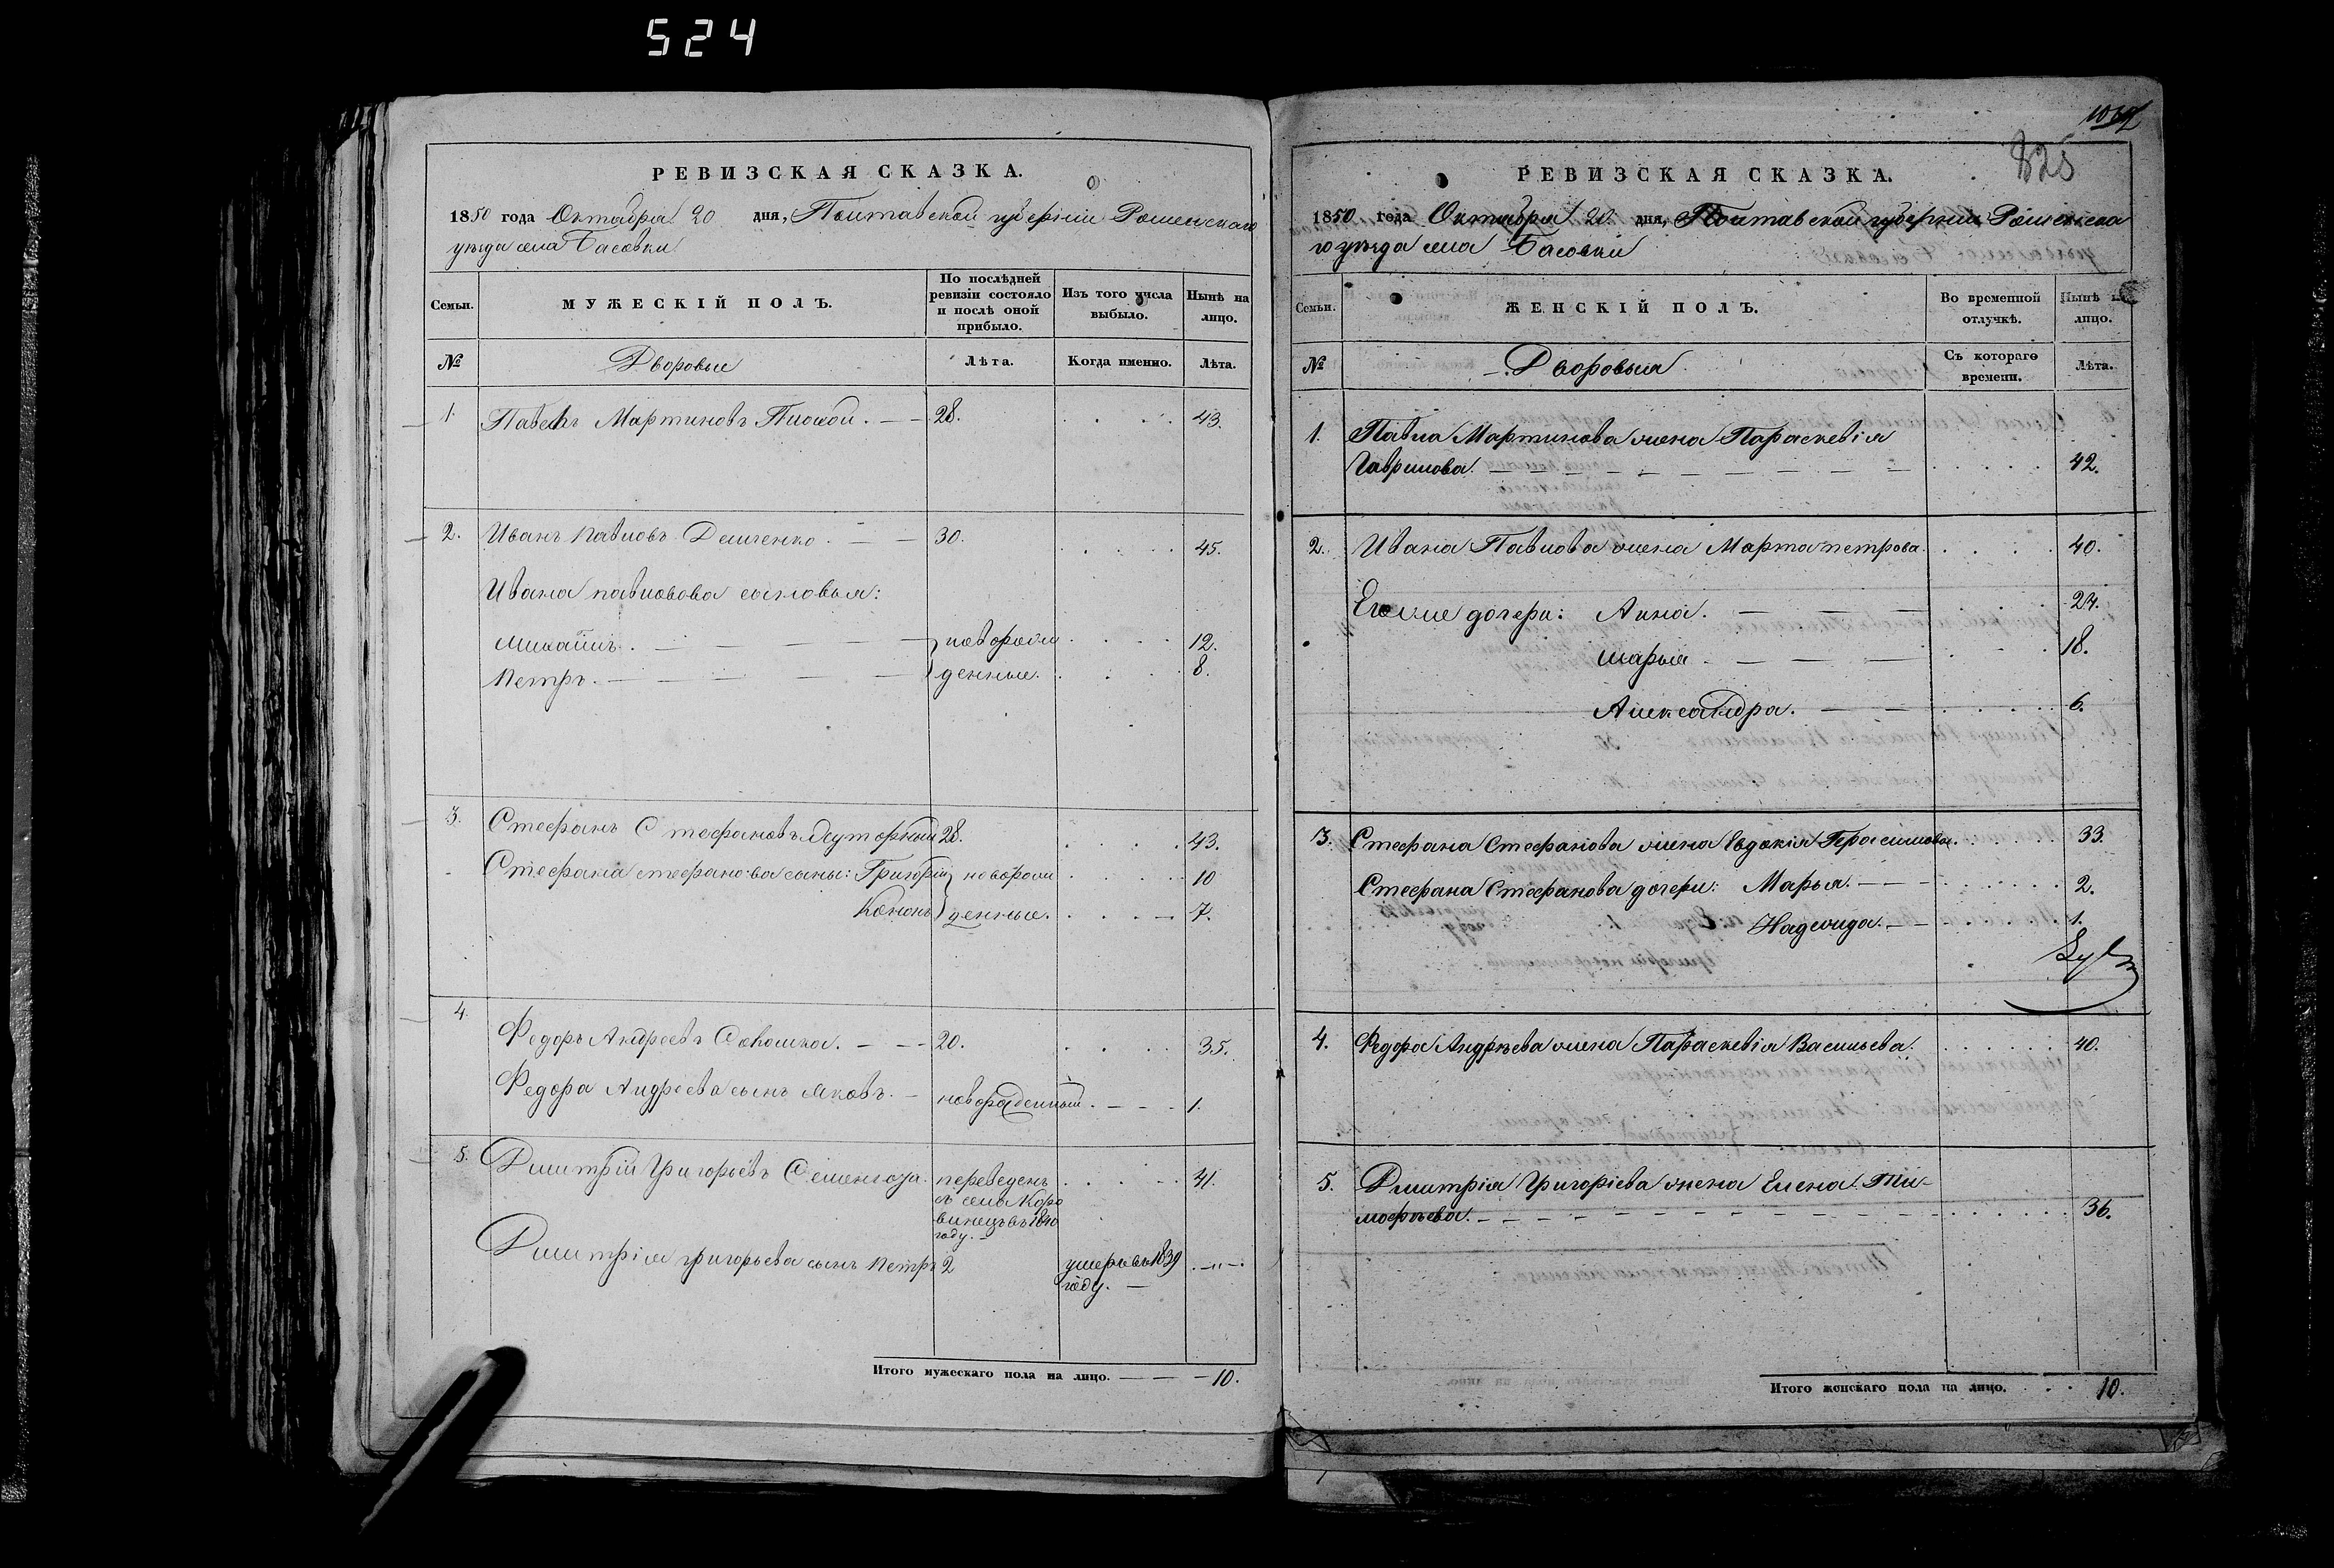 524
РЕВИЗСКАЯ СКАЗКА.
1850 года Октября 20 дня, Полтавской губерніи Роменскаго
уезда села Басовки
Семьи.
МУЖЕСКІЙ ПОЛЪ.
По послѣдней ревизіи состояло и послѣ оной прибыло.
Изъ того числа выбыло.
Нынѣ на лицо.
№
Дворовые
Лѣта.
Когда именно.
Лѣта.
1. Павелъ Мартиновъ — — 28. 43.
2. Иванъ Павловъ Демченко. — — 30. 45.
Ивана павловова сыновья:
Михайлъ. — — — — новорож 12.
Петръ. — — — — денные. 8.
3. Стефанъ Стефановъ 28. 43.
Стефана стефанова сыны: Григорій новорож 10
Кононъ денные. 7.
4. Федоръ Андреевъ — — 20. 35.
Федора Андреева сынъ Яковъ. — новорожденный. — — 1.
5. Дмитрій Григорьевъ Семенгоза. переведенъ 41.
съ села Коро
винецъ въ 1840
году. —
Дмитрія григорьева сынъ Петръ 2 умеръ въ 1839 — „ —
году. —
Итого мужескаго пола на лицо. — — — 10.
825
РЕВИЗСКАЯ СКАЗКА.
1850 года Октября 20 дня, Полтавской губерніи Роменска
го уезда села Басовки
Семьи.
ЖЕНСКІЙ ПОЛЪ.
Во временной отлучкѣ.
Нынѣ на лицо.
№
Дворовыя
Съ котораго времени.
Лѣта.
1. Павла Мартинова жена Параскевія
Гаврилова. — — — — — — 42.
2. Ивана Павлова жена Марта петрова. 40.
Его же дочери: Анна. — — — 24.
Марья — — — 18.
Александра. — — 6.
3. Стефана Стефанова жена Евдокія Герасимова. 33.
Стефана Стефанова дочери: Марья. — — — 2.
Надежда. — — 1.
4. Федора Андрѣева жена Параскевія Васильева. 40.
5. Дмитрія Григоріева жена Елена Ти-
мофѣева. — — — — — — 36.
Итого женскаго пола на лицо. 10.